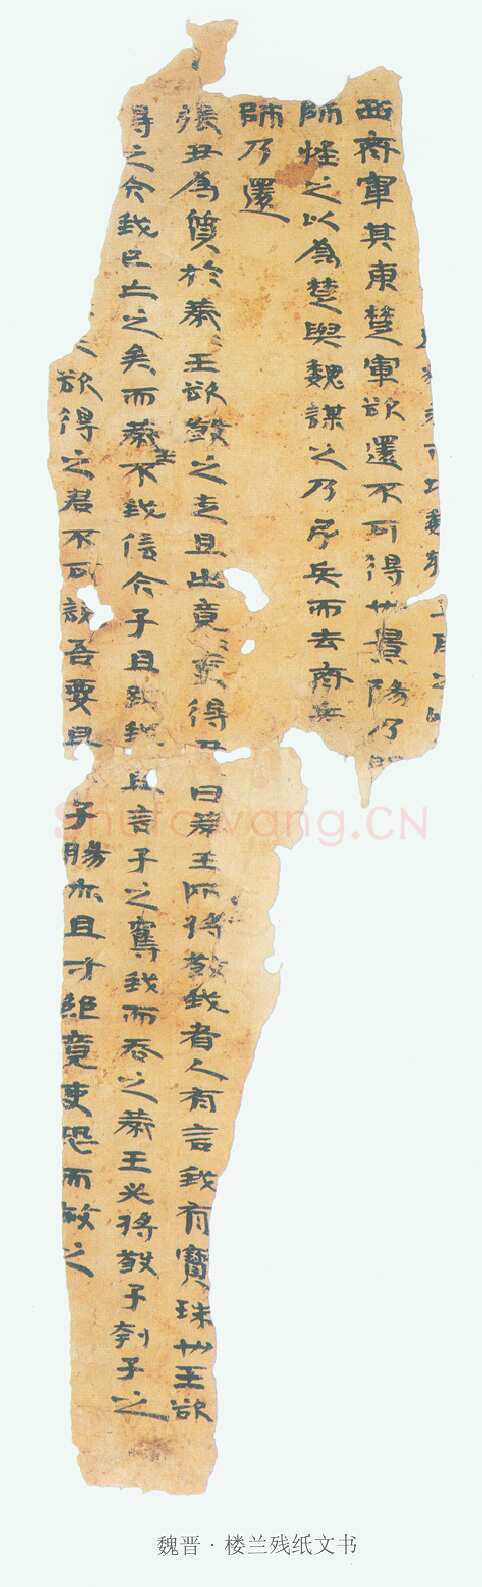 西齊軍其東楚軍欲還不可得也景陽乃
師怪之以為楚與魏謀之乃引兵而去齊兵
師乃還
張丑為質於燕王欲殺之走且出竟吏得丑曰燕王所將殺我者人有言我有寶珠也王欲
得之今我已亡之矣而燕王不我信今子且致我且言子之奪我而吞之燕王必將殺子刳子之
欲得之君不可說吾要且子腸亦且寸絕竟吏恐而赦之
Shufawang.CN
魏晋·楼兰残纸文书